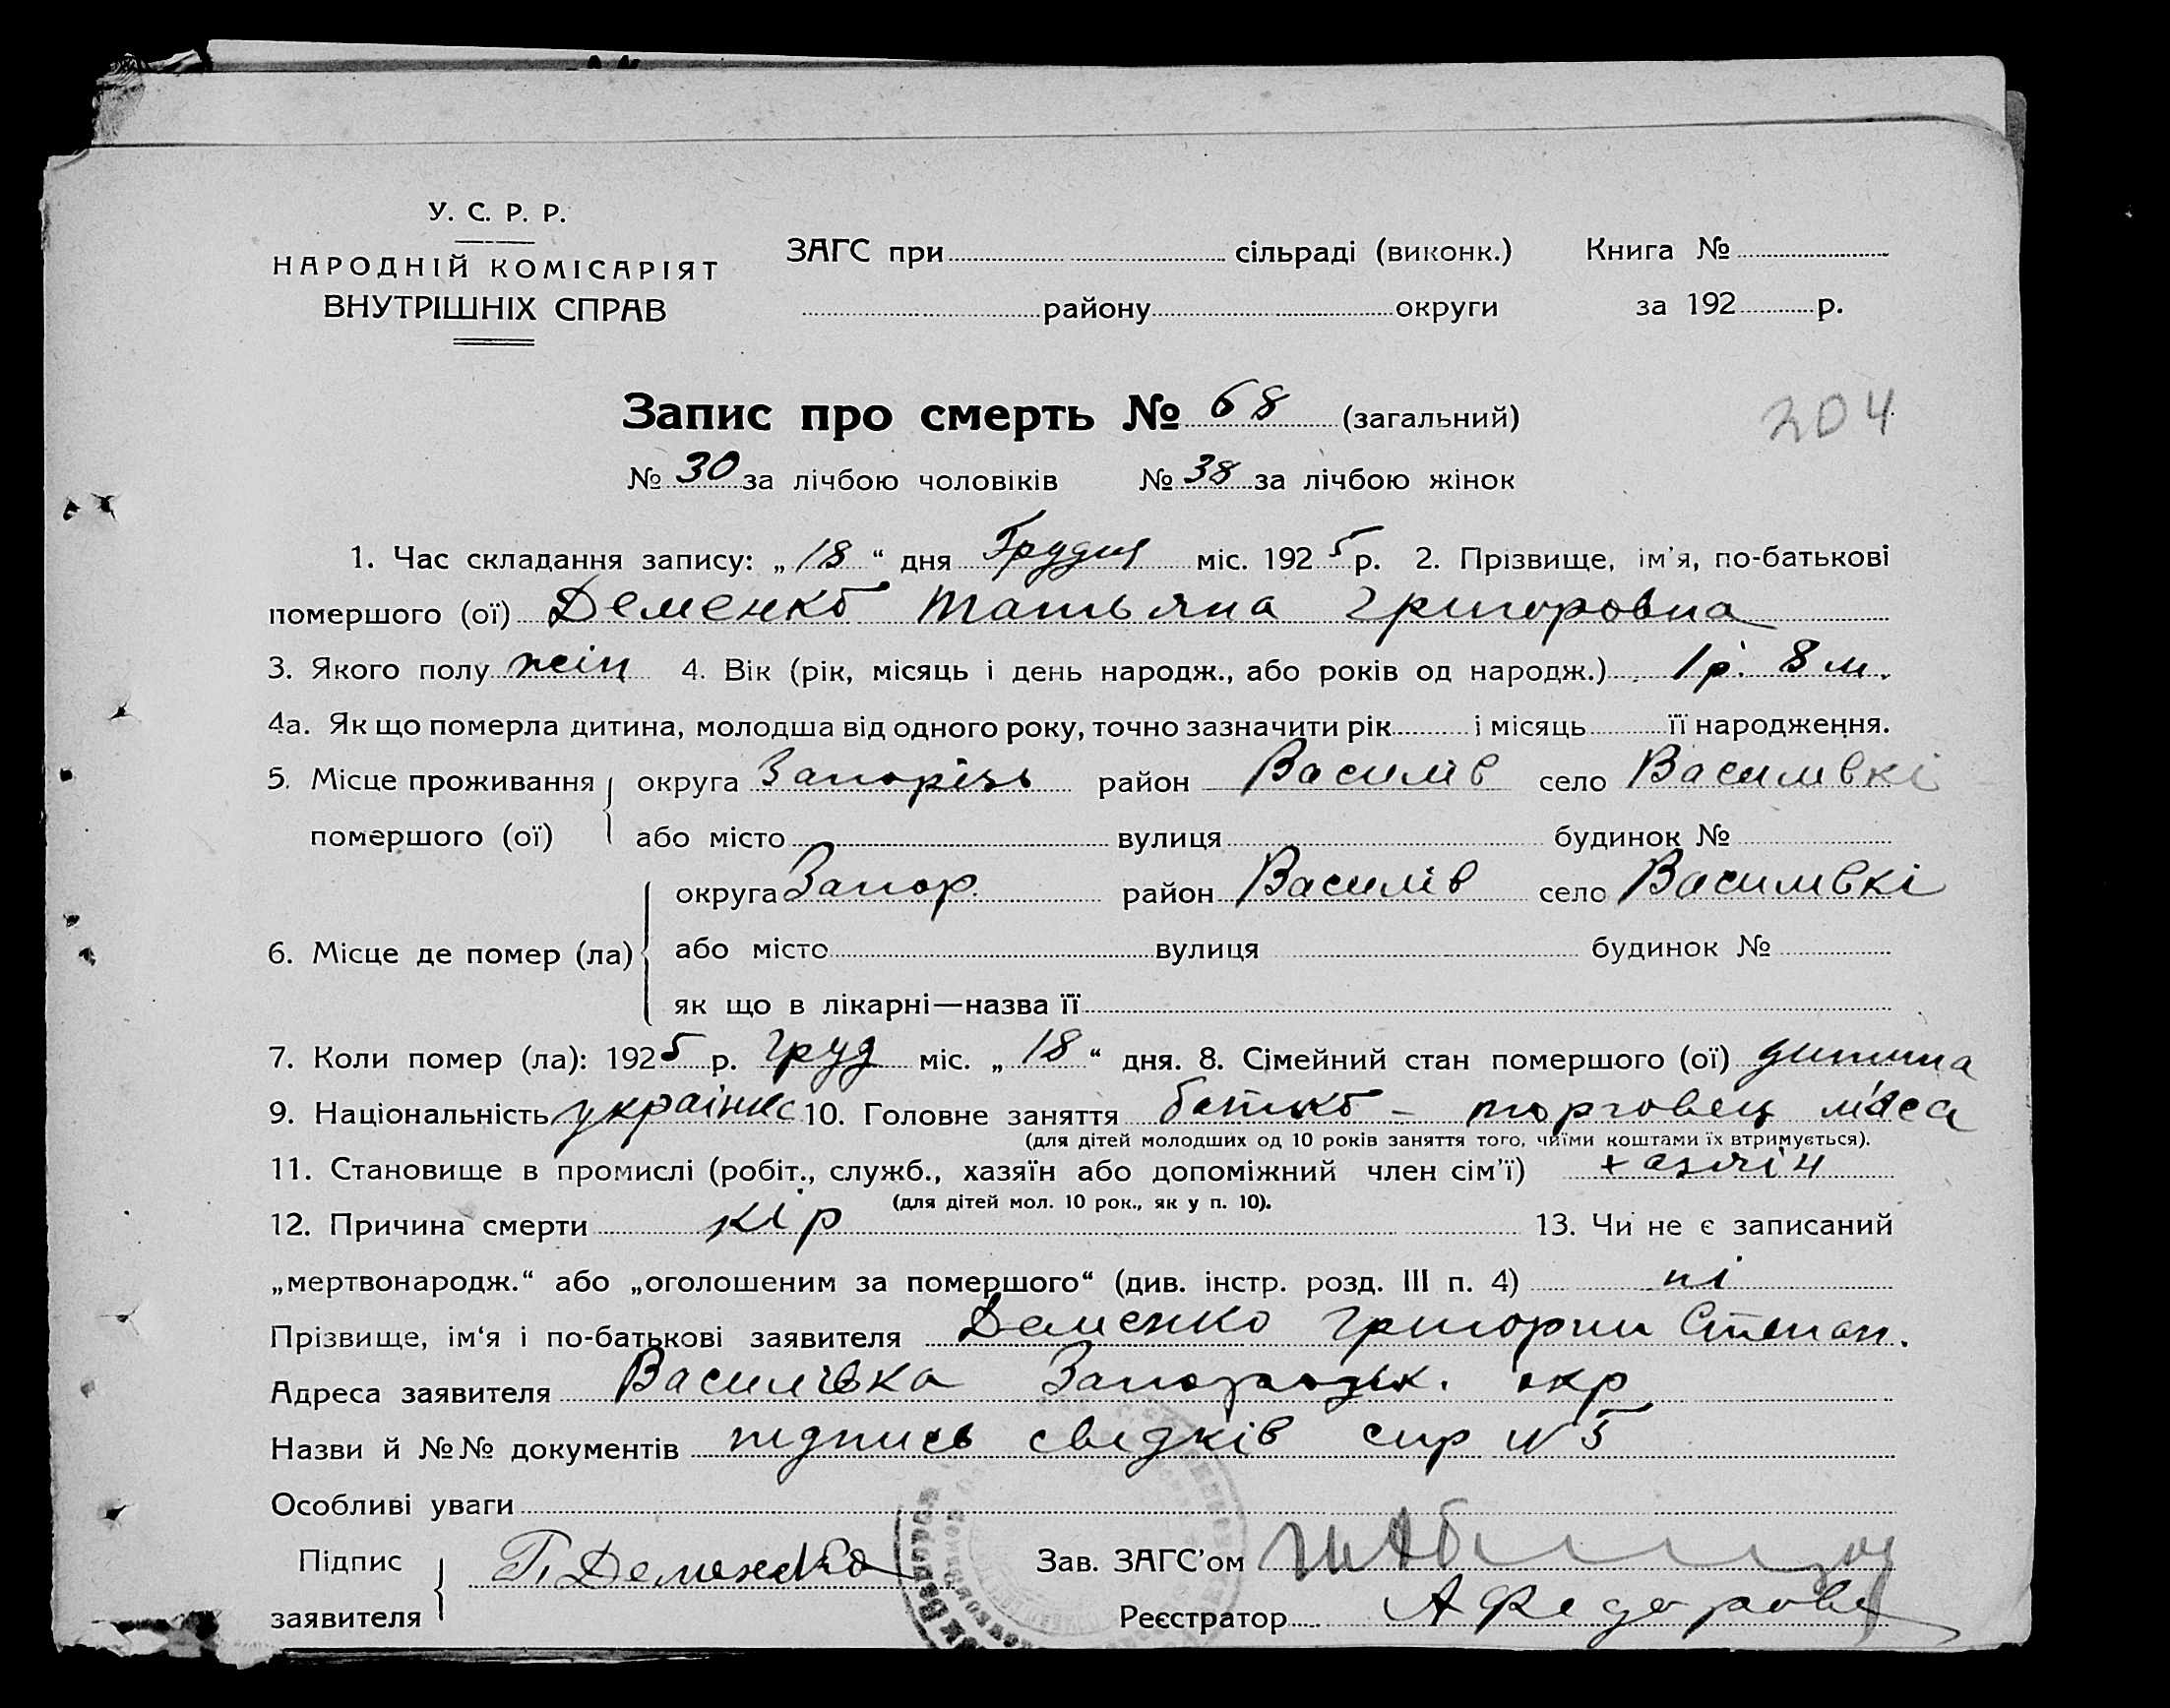 У. С. Р. Р.
НАРОДНІЙ КОМІСАРІЯТ
ВНУТРІШНІХ СПРАВ
ЗАГС при сільраді (виконк.) Книга №
району округи за 192 р.
Запис про смерть № 68 (загальний)
204
№ 30 за лічбою чоловіків № 38 за лічбою жінок
1. Час складання запису: „18“ дня Грудня міс. 1925 р. 2. Прізвище, ім'я, по-батькові
помершого (ої) Деменко Татьяна Григоровна
3. Якого полу жін 4. Вік (рік, місяць і день народж., або років од народж.) 1 р. 8 м.
4а. Як що померла дитина, молодша від одного року, точно зазначити рік і місяць її народження.
5. Місце проживання округа Запорізь район Василів село Василівкі
помершого (ої) або місто вулиця будинок №
округа Запор. район Василів село Василівкі
6. Місце де помер (ла) або місто вулиця будинок №
як що в лікарні—назва її
7. Коли помер (ла): 1925 р. груд міс. „18“ дня. 8. Сімейний стан помершого (ої) дитина
9. Національність українка 10. Головне заняття батько - торговец мяса
(для дітей молодших од 10 років заняття того, чиїми коштами їх втримується).
11. Становище в промислі (робіт., служб., хазяїн або допоміжний член сім'ї) хазяін
(для дітей мол. 10 рок., як у п. 10).
12. Причина смерти кір 13. Чи не є записаний
„мертвонародж.“ або „оголошеним за помершого“ (див. інстр. розд. III п. 4) ні
Прізвище, ім'я і по-батькові заявителя Деменко Григории Степан.
Адреса заявителя Василівка Запорозьк. окр
Назви й №№ документів підпись свидків спр N 5
Особливі уваги
Підпис Г. Деменко Зав. ЗАГС'ом
заявителя Реєстратор А Федорова